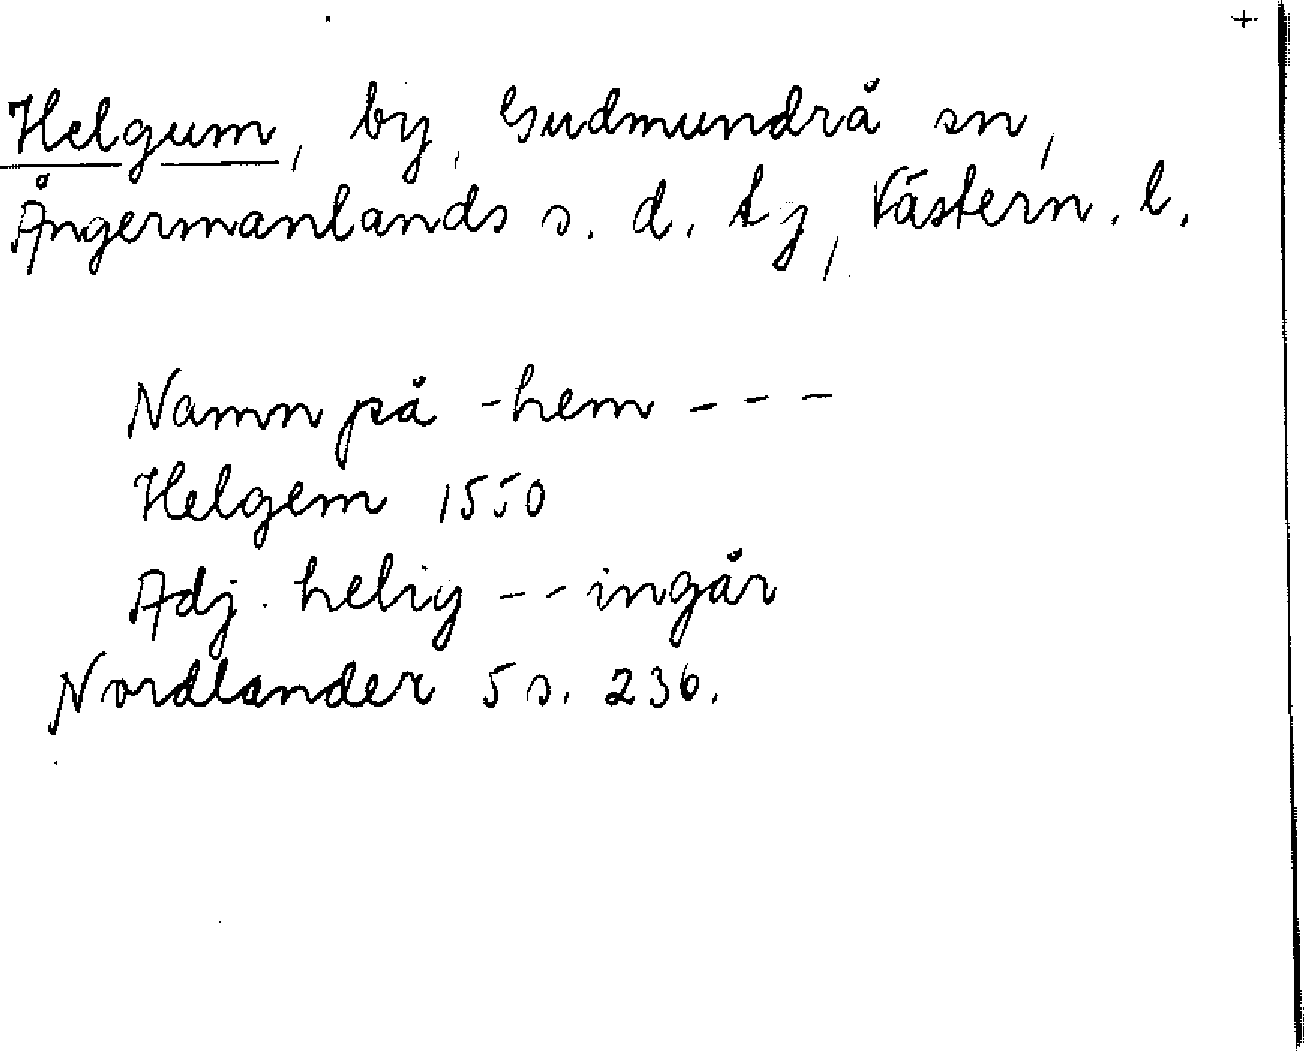 +
Helgum, by, Gudmundrå sn,
Ångermanlands s. d. tg, Västern. l.
Namn på -hem - - -
Helgem 1550
Adj. helig - - ingår
Nordlander 5 s. 236.